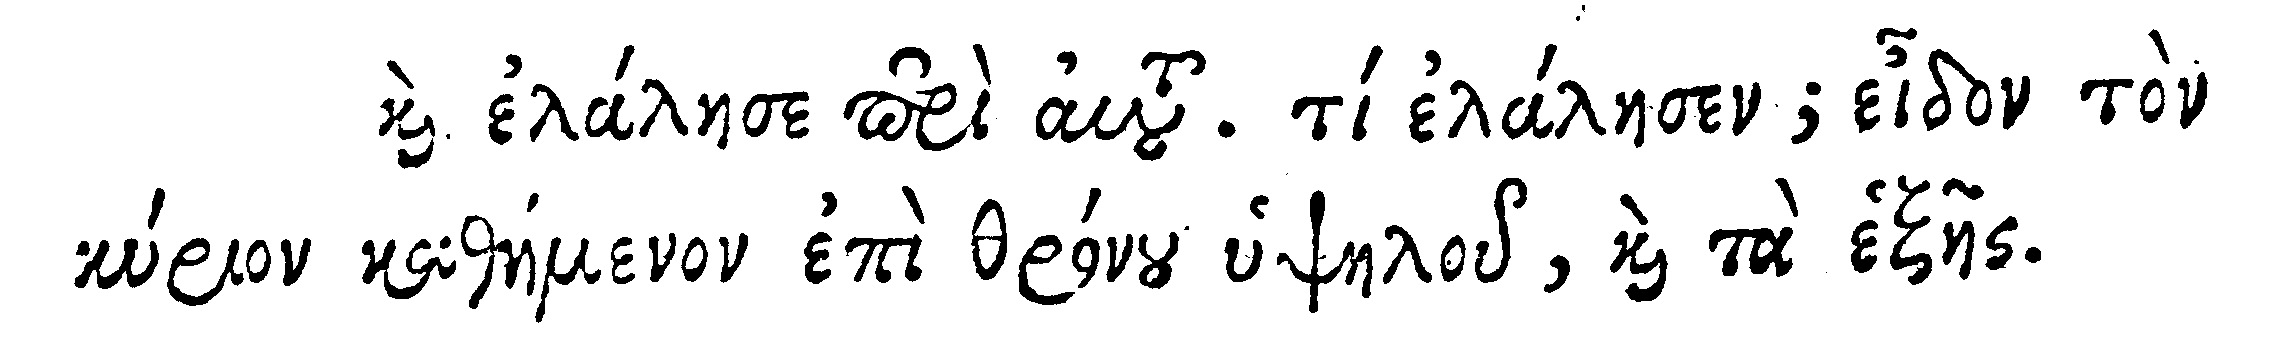 καὶ ἐλάλησε περὶ αὐτοῦ. τί ἐλάλησεν; εἶδον τὸν
κύριον καθήμενον ἐπὶ θρόνου ὑψηλοῦ, καὶ τὰ ἑξῆς.